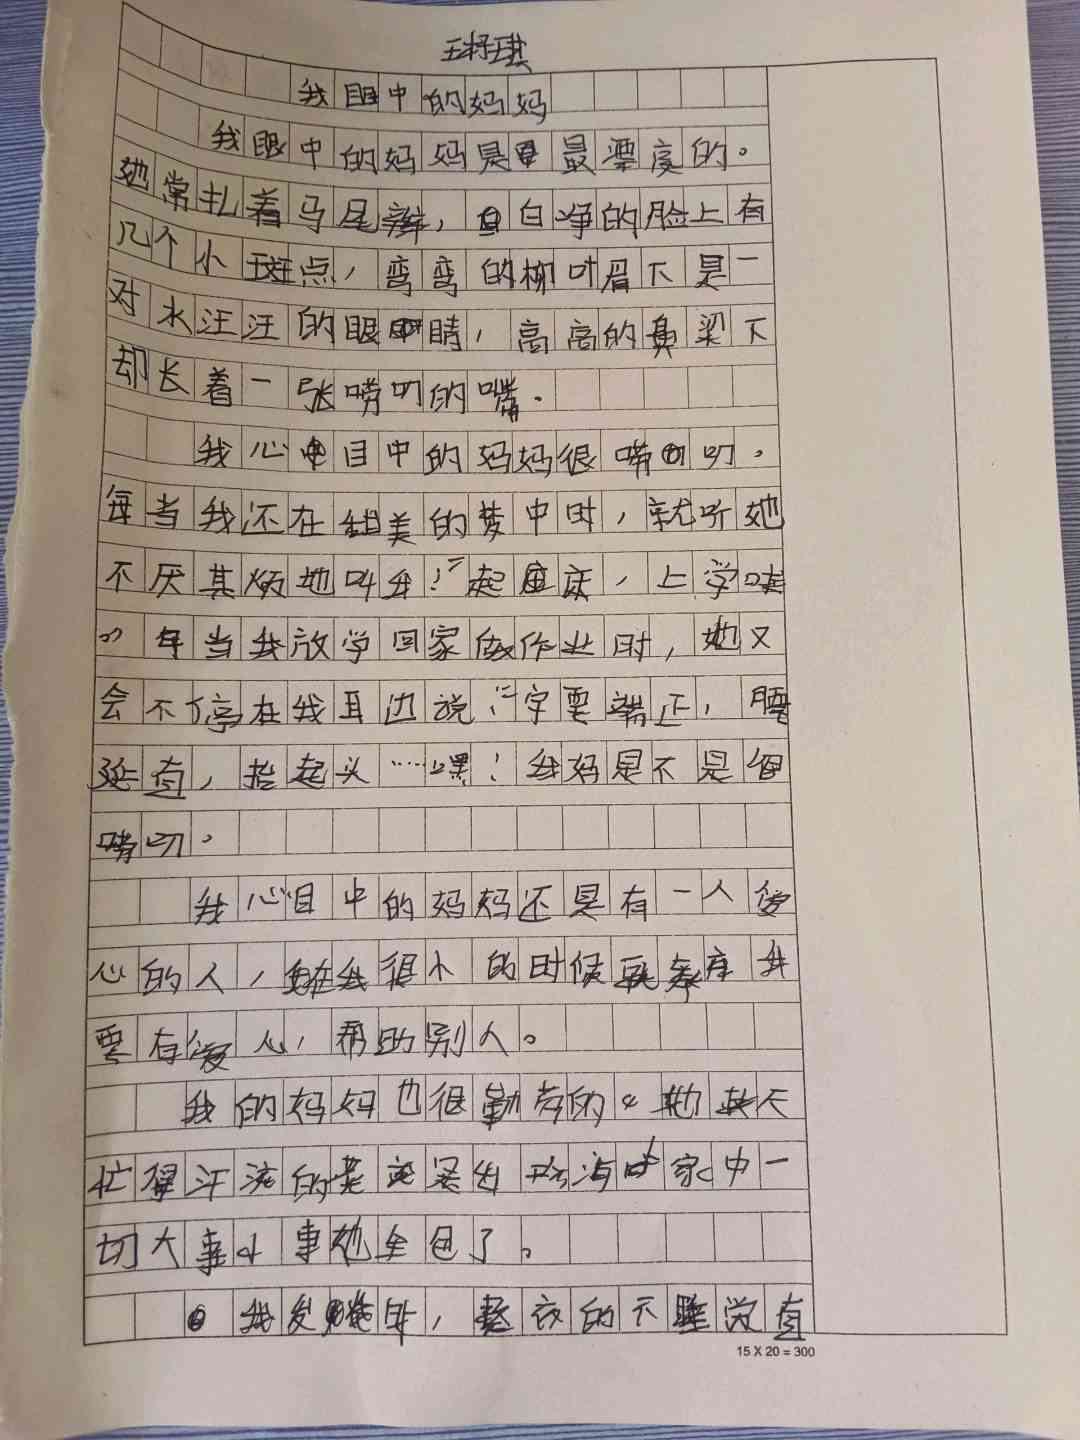 我眼中的妈妈
我眼中的妈妈是最漂亮的。
她常扎着马尾辫，白净的脸上有
几个小斑点，弯弯的柳叶眉下是一
对水汪汪的眼睛，高高的鼻梁下
却长着一张唠叨的嘴.
我心目中的妈妈很唠叨。
每当我还在甜美的梦中时，就听她
不厌其烦地叫我:“起床，上学啦
”每当我放学回家做作业时，她又
会不停在我耳边说:“字要端正，腰
挺直，抬起头……嘿！我妈是不是很
唠叨。
我心目中的妈妈还是有一人爱
心的人，在我很小的时候就教育我
要有爱心，帮助别人。
我的妈妈也很勤劳的。她天
忙得汗流的 家中一
切大事小事她全包了。
我发烧时，整夜的不睡觉直
15 X 20 = 300